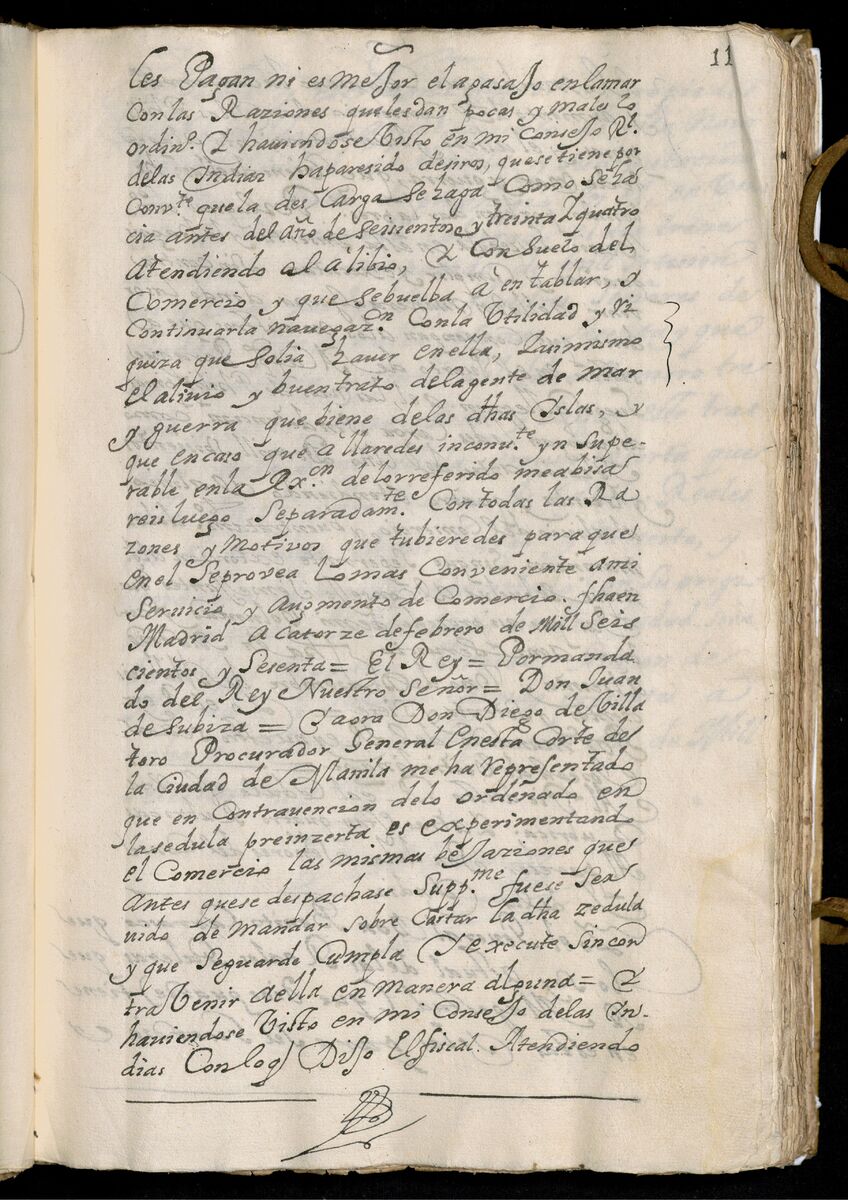 11
les Pagan ni es mejor el apasajo en la mar
Con las Raziones que les dan pocas y males lo
ordin.º Y haviendose Visto en mi Consejo Rl.
de las Indias ha paresido deziros, que se tiene por
Conv.te que la des Carga se haga Como se ha
cia antes del año de seiscientos y treinta Y quatro
Atendiendo al álibio, Y Consuelo del
Comercio y que se buelba à entablar, y
Continuar la navegaz.n Con la Utilidad y ri
quiza que solia haver en ella, Y ui mismo
el alivio y buen trato de la gente de mar
y guerra que biene de las dhas Yslas, y
que en caso que àllaredes inconv.te yn supe-
rable en la Rx.on de lo rreferido me abisa
reis luego separadam.te Con todas las Ra
zones y motivos que tubieredes para que
en el se provea lo mas Conveniente a mi
servicio y augmento de Comercio. fha en
Madrid a Catorze de febrero de Mill seis
cientos y sesenta = El Rey = Por manda
do del Rey Nuestro señor = Don Juan
de subiza = Y aora Don Diego de Villa
toro Procurador General En esta Corte de
la Ciudad de Manila me ha representado
que en Contravencion de lo ordenado en
la sedula preinzerta es experimentando
el Comercio las mismas bejaziones que
antes que se despachase Supp.me fuese ser
vido de mandar sobre Cartar la dha zedula
y que se guarde Cumpla Y execute sin con
tra Venir a ella en manera alguna = Y
haviendose Visto en mi Consejo de las In-
dias Con lo q Dijo El fiscal. Atendiendo